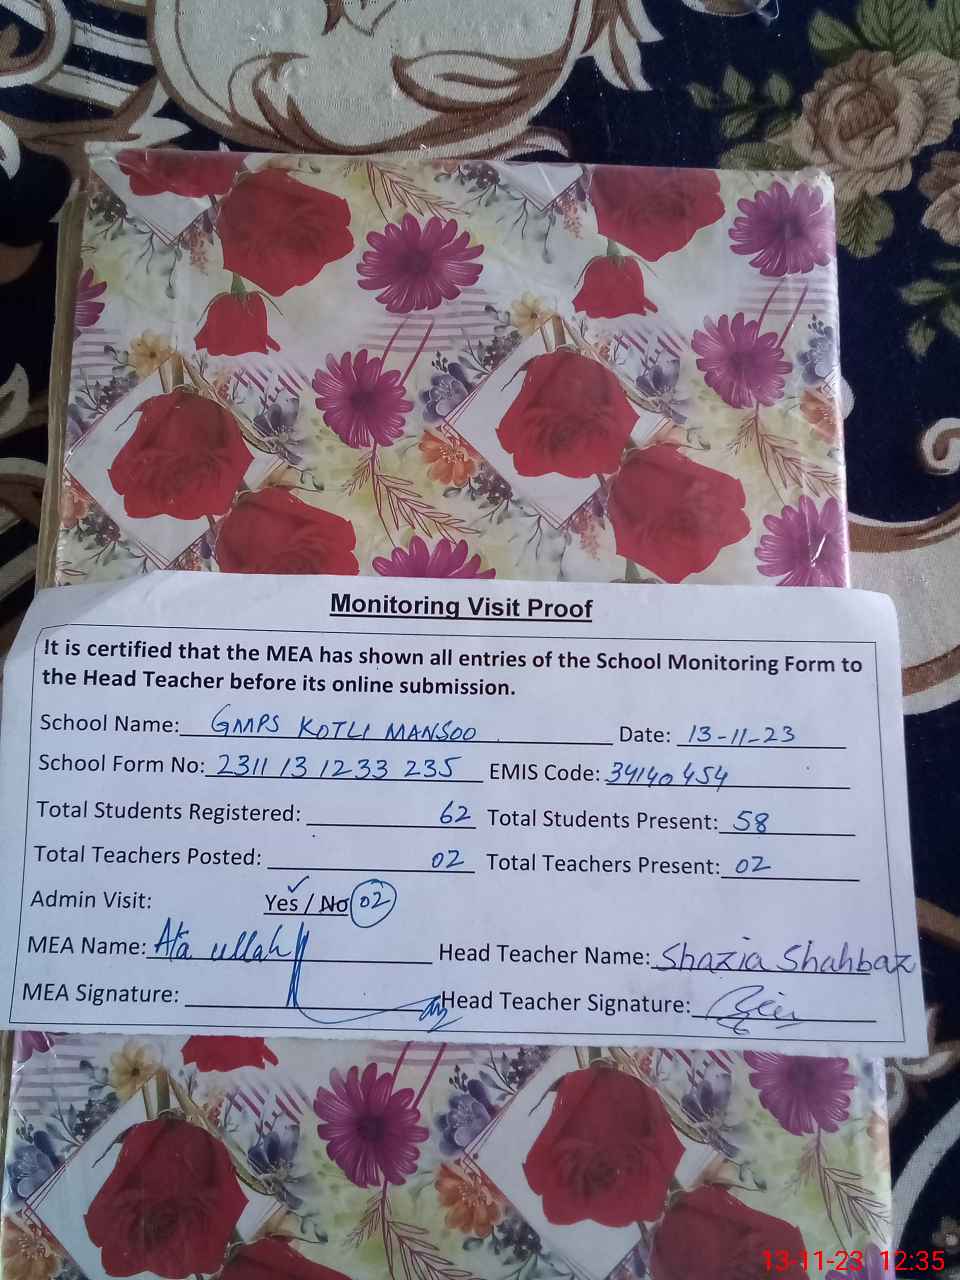 Monitoring Visit Proof
It is certified that the MEA has shown all entries of the School Monitoring Form to
the Head Teacher before its online submission.
School Name: GMPS KOTLI MANSOO . Date: 13-11-23
School Form No: 2311 13 1233 235 EMIS Code: 34140454
Total Students Registered: 62 Total Students Present: 58
Total Teachers Posted: 02 Total Teachers Present: 02
Admin Visit: Yes / No 02
MEA Name: Ata ullah Head Teacher Name: Shazia Shahbaz
MEA Signature: Head Teacher Signature:
13-11-23 12:35